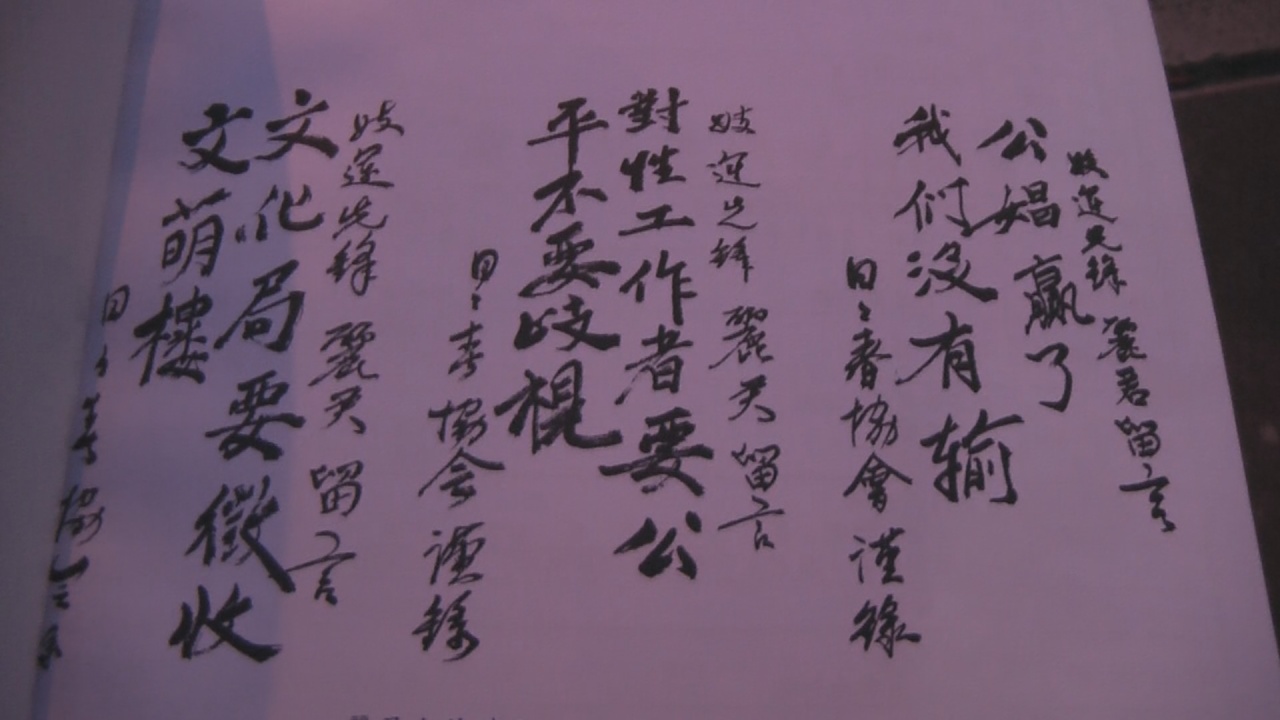 妓運先鋒 麗君留言
公娼贏了
我们没有输
日日春協會謹錄
妓運先鋒 麗君留言
對性工作者要公
平不要歧視
日日春協会謹錄
妓運先鋒 麗君留言
文化局要徵收
文萌樓
日日春協会